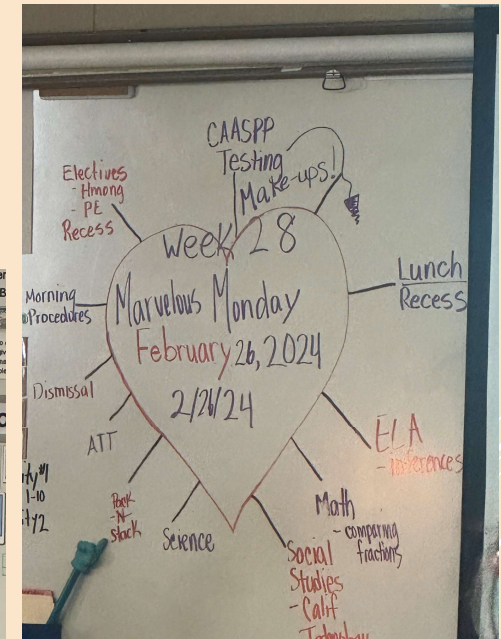 CAASPP
Testing
Make-ups!
Electives
- Hmong
- PE
Recess
Week 28
Marvelous Monday
February 26, 2024
2/26/24
Lunch
Recess
Morning
Procedures
Dismissal
ATT
Pack
-N-
stack
Science
ELA
- Inferences
Math
- comparing
fractions
Social
Studies
- Calif
1-10